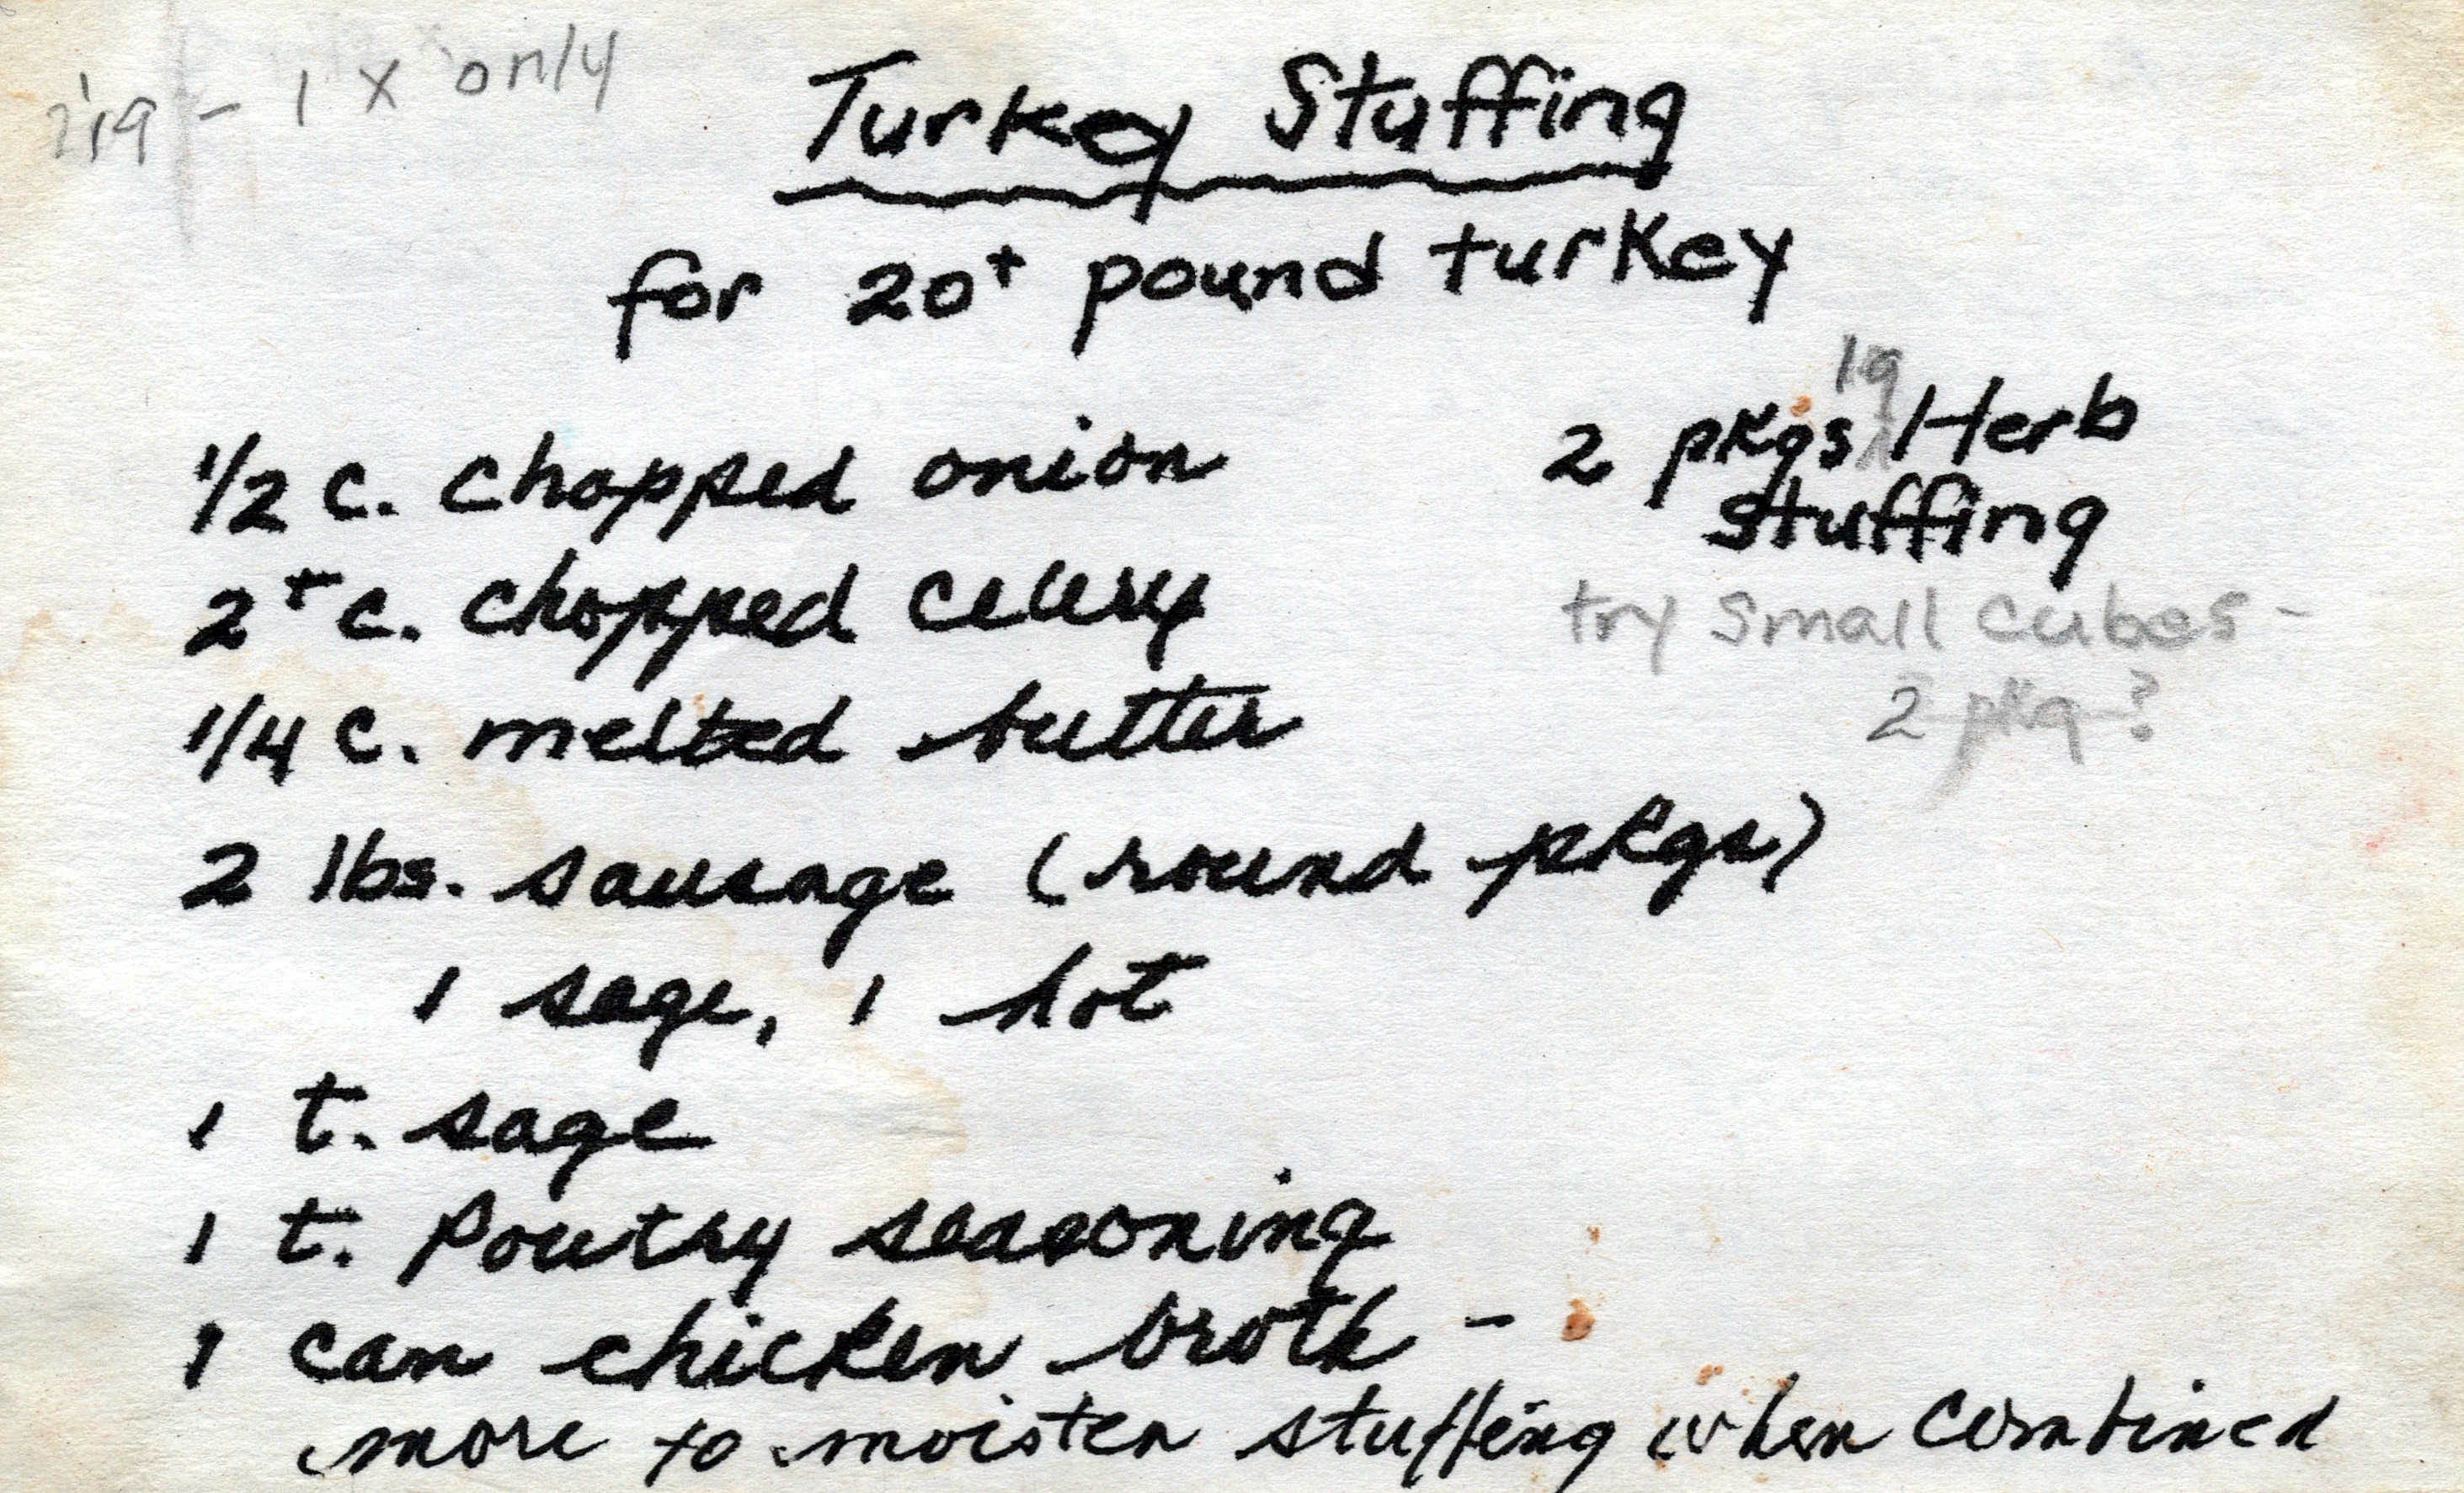 - 1 x only
Turkey Stuffing
for 20+ pound turkey
1/2 c. chopped onion
2+ c. chopped celery
1/4 c. melted butter
2 lbs. sausage (round pkgs)
1 sage, 1 hot
1 t. sage
1 t. Poultry seasoning
1 can chicken broth -
more to moisten stuffing when combined
lg
2 pkgs Herb
stuffing
try small cubes -
2 pkg?